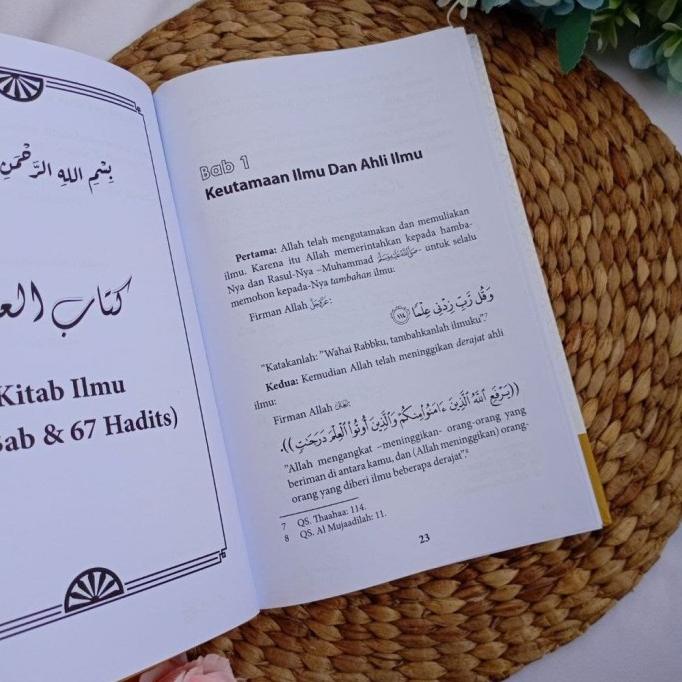 بِسْمِ اللهِ الرَّحْمَنِ
كتاب
Kitab Ilmu
Bab & 67 Hadits)
Bab 1
Keutamaan Ilmu Dan Ahli Ilmu
Pertama: Allah telah mengutamakan dan memuliakan
ilmu. Karena itu Allah memerintahkan kepada hamba-
Nya dan Rasul-Nya –Muhammad ﷺ- untuk selalu
memohon kepada-Nya tambahan ilmu:
Firman Allah :
وَقُل رَّبِّ زِدْنِي عِلْمًا ١١٤
"Katakanlah: "Wahai Rabbku, tambahkanlah ilmuku".7
Kedua: Kemudian Allah telah meninggikan derajat ahli
ilmu:
Firman Allah :
((يَرْفَعِ ٱللَّهُ ٱلَّذِينَ ءَامَنُوا۟ مِنكُمْ وَٱلَّذِينَ أُوتُوا۟ ٱلْعِلْمَ دَرَجَٰتٍ)).
"Allah mengangkat –meninggikan- orang-orang yang
beriman di antara kamu, dan (Allah meninggikan) orang-
orang yang diberi ilmu beberapa derajat".8
7 QS. Thaahaa: 114.
8 QS. Al Mujaadilah: 11.
23